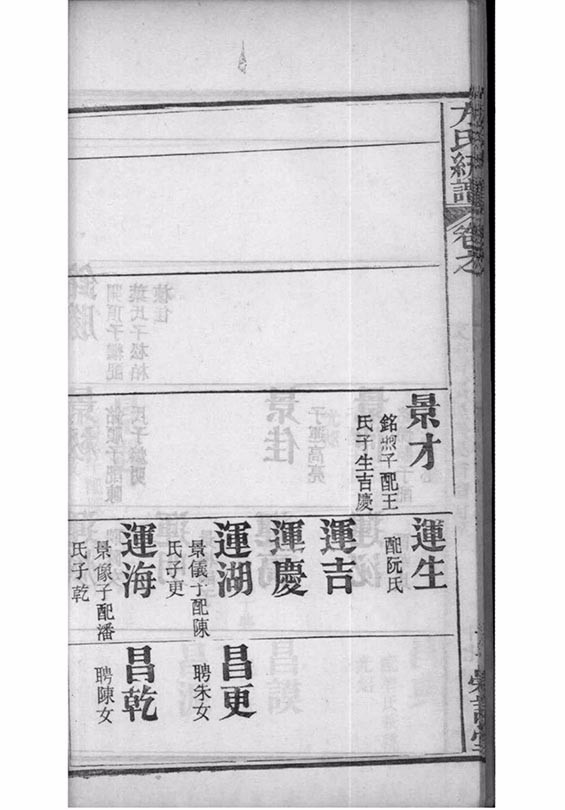 方氏統譜
卷之
景才
銘照子配王
氏子生吉慶
運生
配阮氏
運吉
運慶
運湖
景儀子配陳
氏子更
運海
景像子配潘
氏子乾
昌更
聘朱女
昌乾
聘陳女